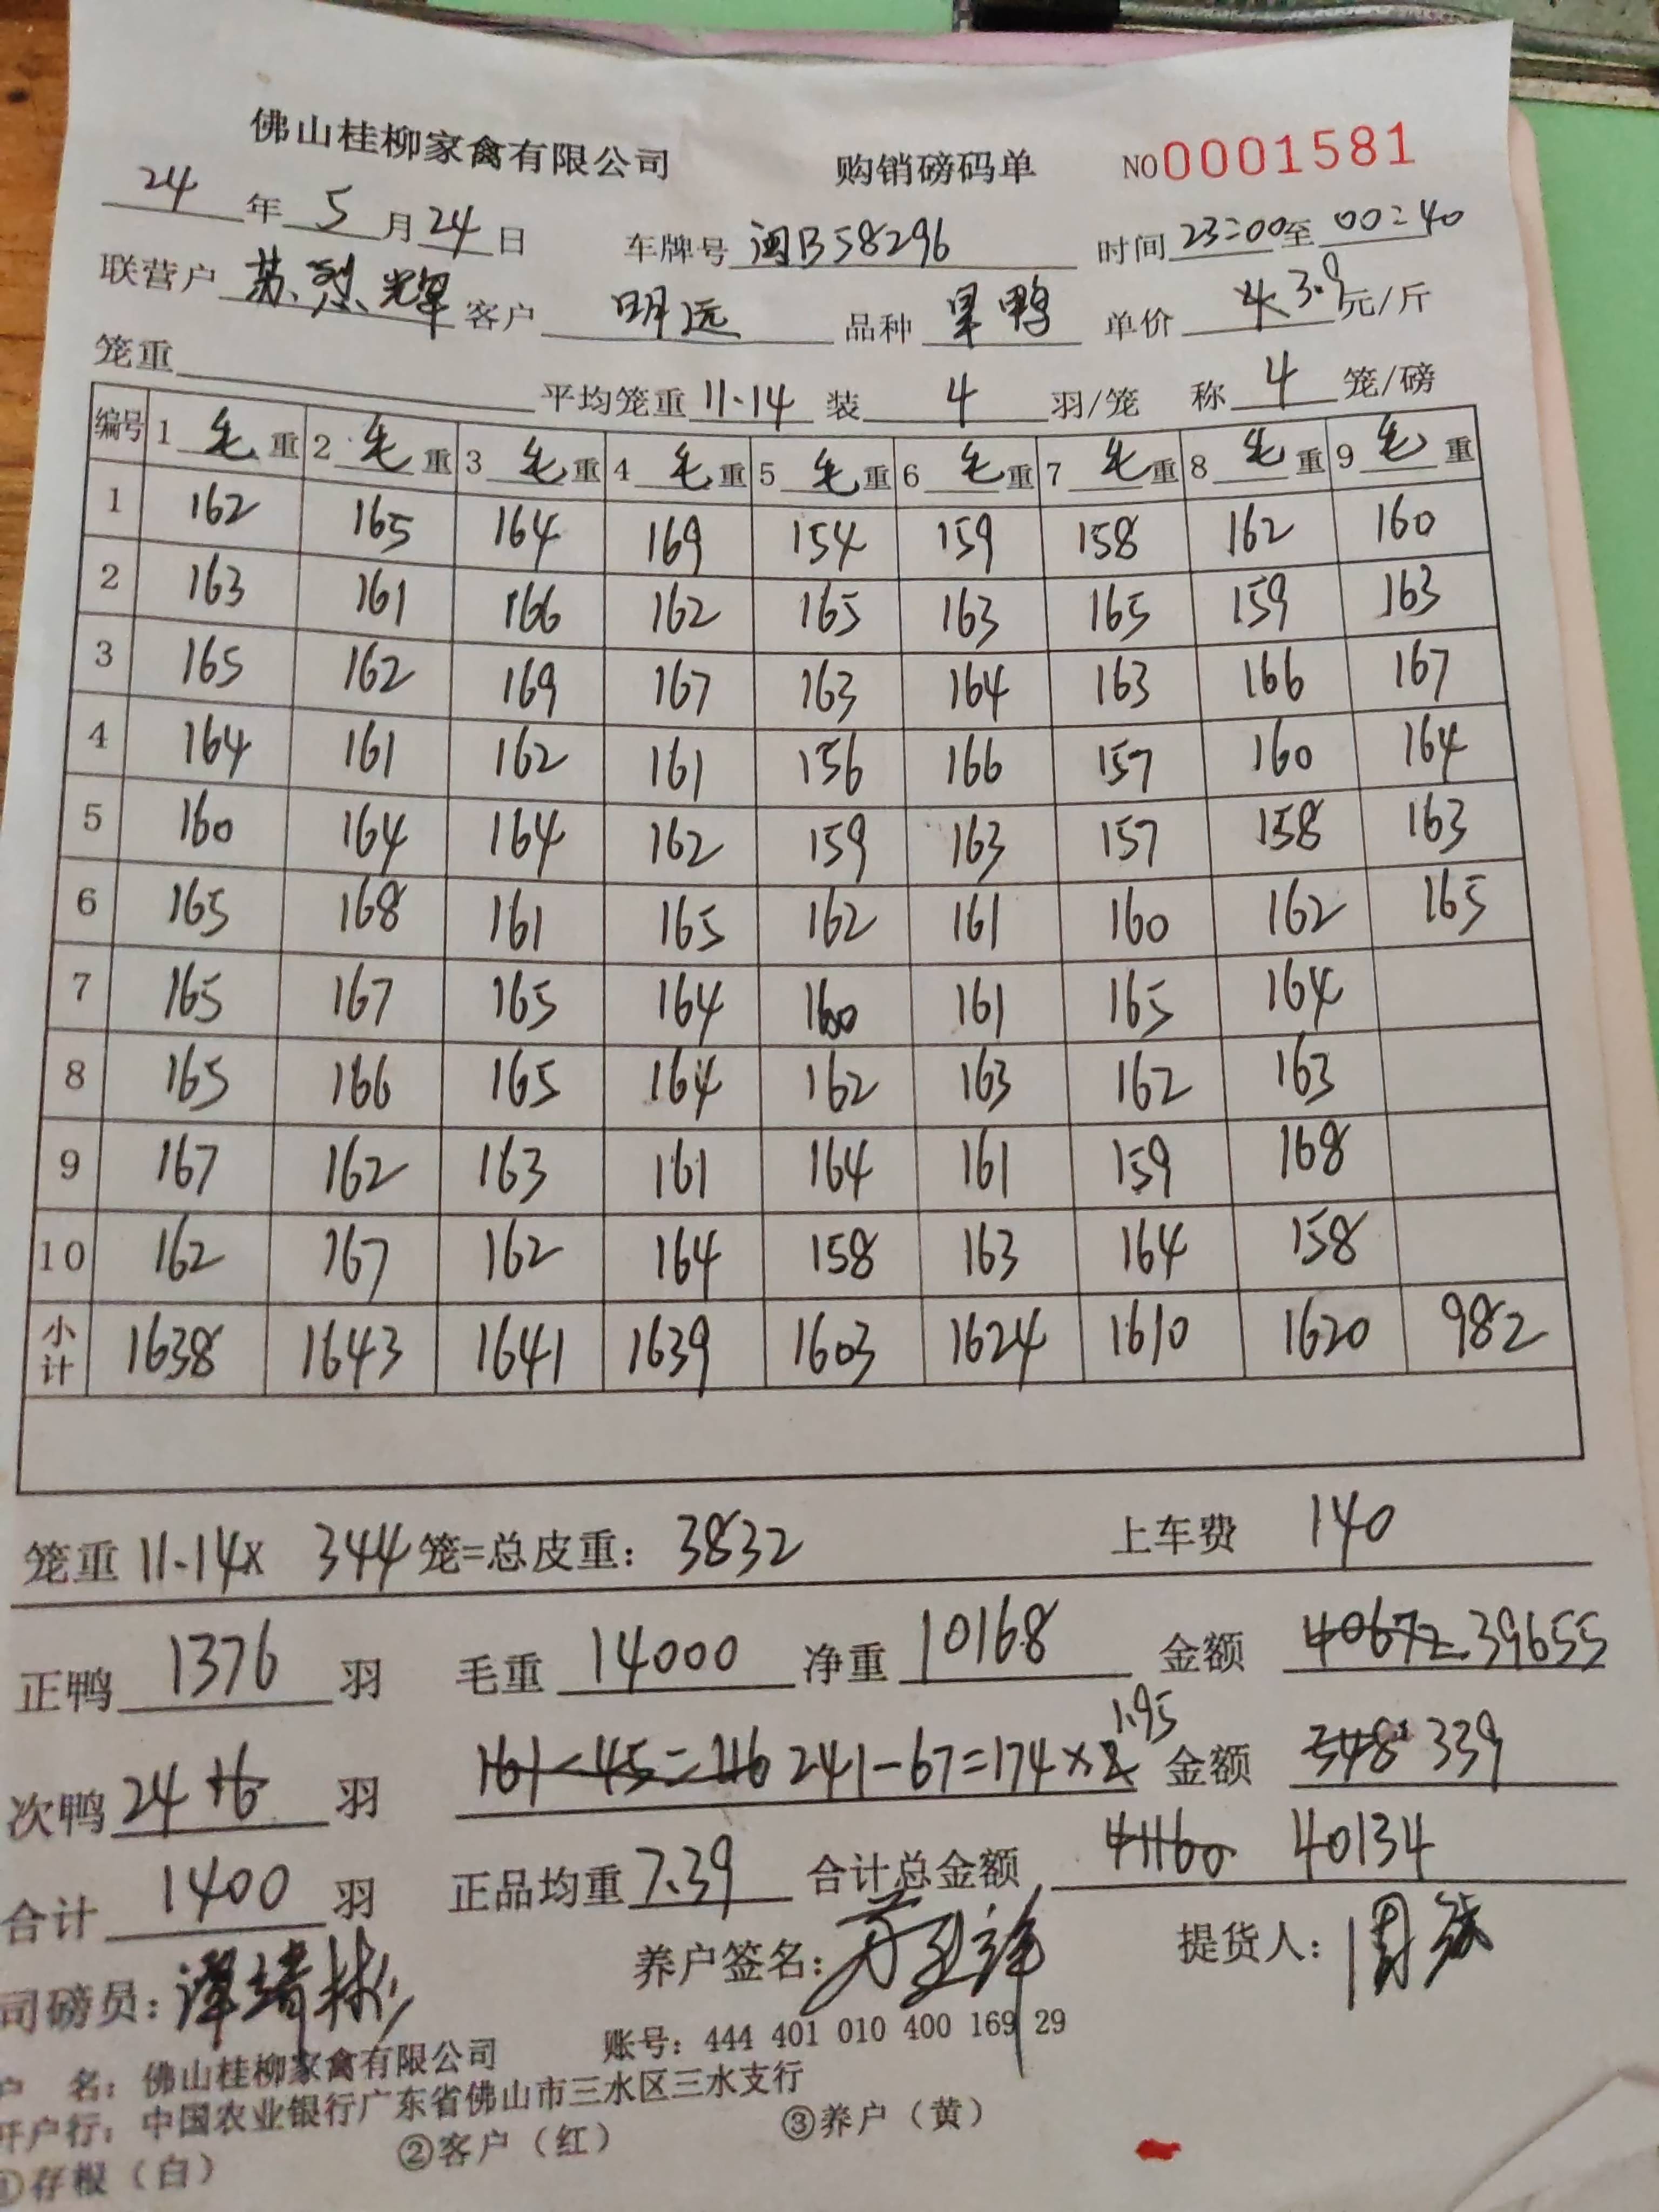 佛山桂柳家禽有限公司 购销磅码单 NO0001581
24年5月24日 车牌号 闽B58296 时间 23:00至00:40
联营户 苏烈辉 客户 明远 品种 单价 4 3.9元/斤
笼重 平均笼重 11.14 装 4 羽/笼 称 4 笼/磅
编号 1 毛重 2 毛重 3 毛重 4 毛重 5 毛重 6 毛重 7 毛重 8 毛重 9 毛重
1 162 165 164 169 154 159 158 162 160
2 163 161 166 162 165 163 165 159 163
3 165 162 169 167 163 164 163 166 167
4 164 161 162 161 156 166 157 160 164
5 160 164 164 162 159 163 157 158 163
6 165 168 161 165 162 161 160 162 165
7 165 167 165 164 160 161 165 164
8 165 166 165 164 162 163 162 163
9 167 162 163 161 164 161 159 168
10 162 167 162 164 158 163 164 158
小计 1638 1643 1641 1639 1603 1624 1610 1620 982
笼重 11.14× 344 笼=总皮重: 3832 上车费 140
正鸭 1376 羽 毛重 14000 净重 10168 金额 40672 39655
次鸭 24 +6 羽 161-45=116 241-67=174×2 1.95 金额 348 339
合计 1400 羽 正品均重 7.39 合计总金额 41160 40134
司磅员: 养户签名: 提货人:
户 名: 佛山桂柳家禽有限公司 账号: 444 401 010 400 169 29
开户行: 中国农业银行广东省佛山市三水区三水支行
①存根(白) ②客户(红) ③养户(黄)